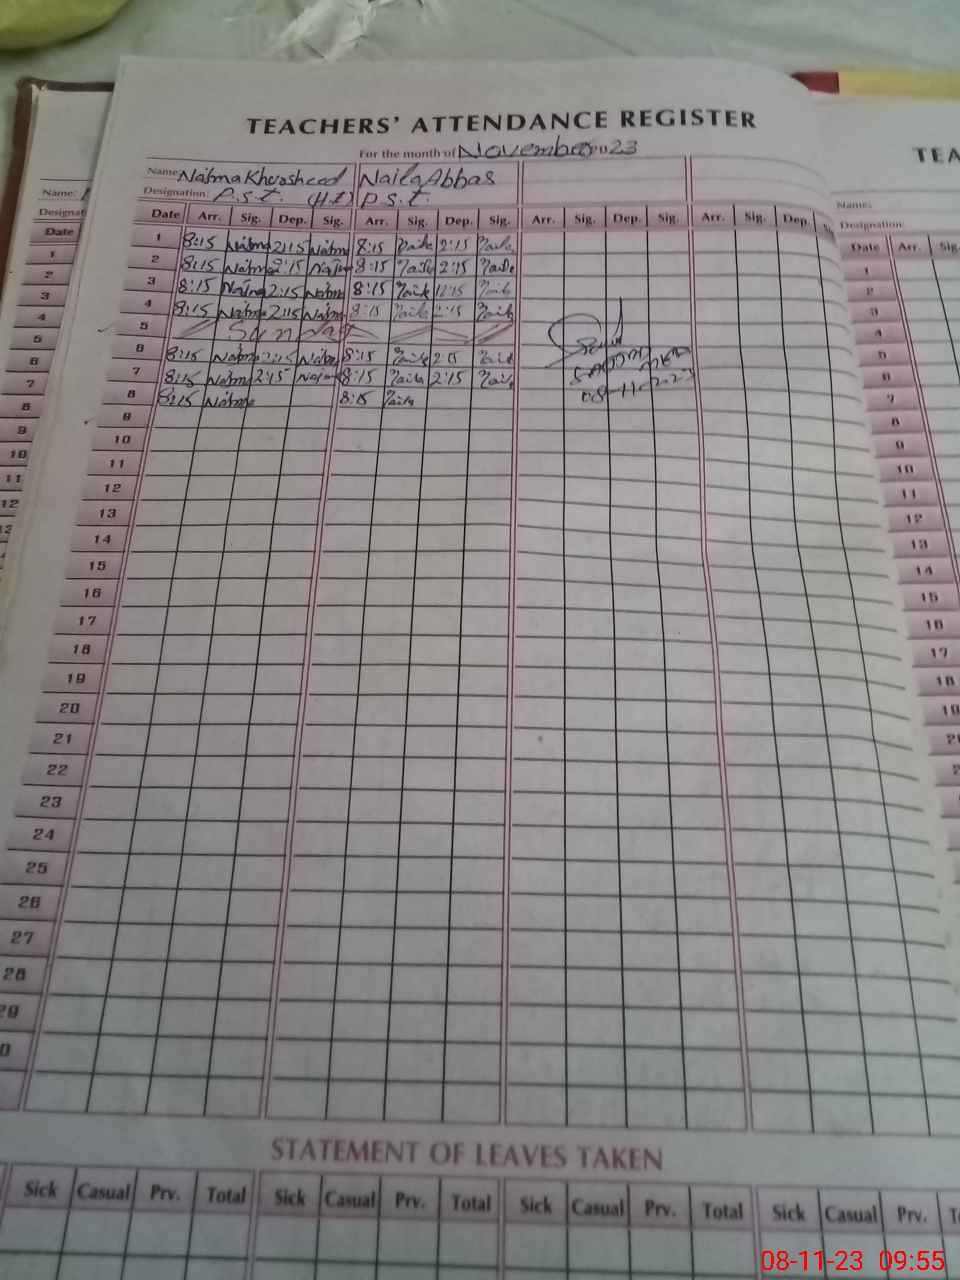 TEACHERS' ATTENDANCE REGISTER
For the month of November 2023
Name: Naima Khursheed Naila Abbas
Designation: P.S.t. (H.t) P.S.t.
Date Arr. Sig. Dep. Sig. Arr. Sig. Dep. Sig. Arr. Sig. Dep. Sig. Arr. Sig. Dep.
1 8:15 Naima 2:15 Naima 8:15 Naila 2:15 Naila
2 8:15 Naima 2:15 Naima 8:15 Naila 2:15 Naila
3 8:15 Naima 2:15 Naima 8:15 Naila 12:15 Naila
4 8:15 Naima 2:15 Naima 8:15 Naila 2:15 Naila
5 Sunday
6 8:15 Naima 2:15 Naima 8:15 Naila 2:15 Naila
7 8:15 Naima 2:15 Naima 8:15 Naila 2:15 Naila
8 8:15 Naima 8:15 Naila
08-11-2023
9
10
11
12
13
14
15
16
17
18
19
20
21
22
23
24
25
26
27
28
29
STATEMENT OF LEAVES TAKEN
Sick Casual Prv. Total Sick Casual Prv. Total Sick Casual Prv. Total Sick Casual Prv.
Name:
Date
1
2
3
4
5
6
7
8
9
10
11
12
TEA
Name:
Designation:
Date Arr. Sig.
1
2
3
4
5
6
7
8
9
10
11
12
13
14
15
16
17
18
08-11-23 09:55